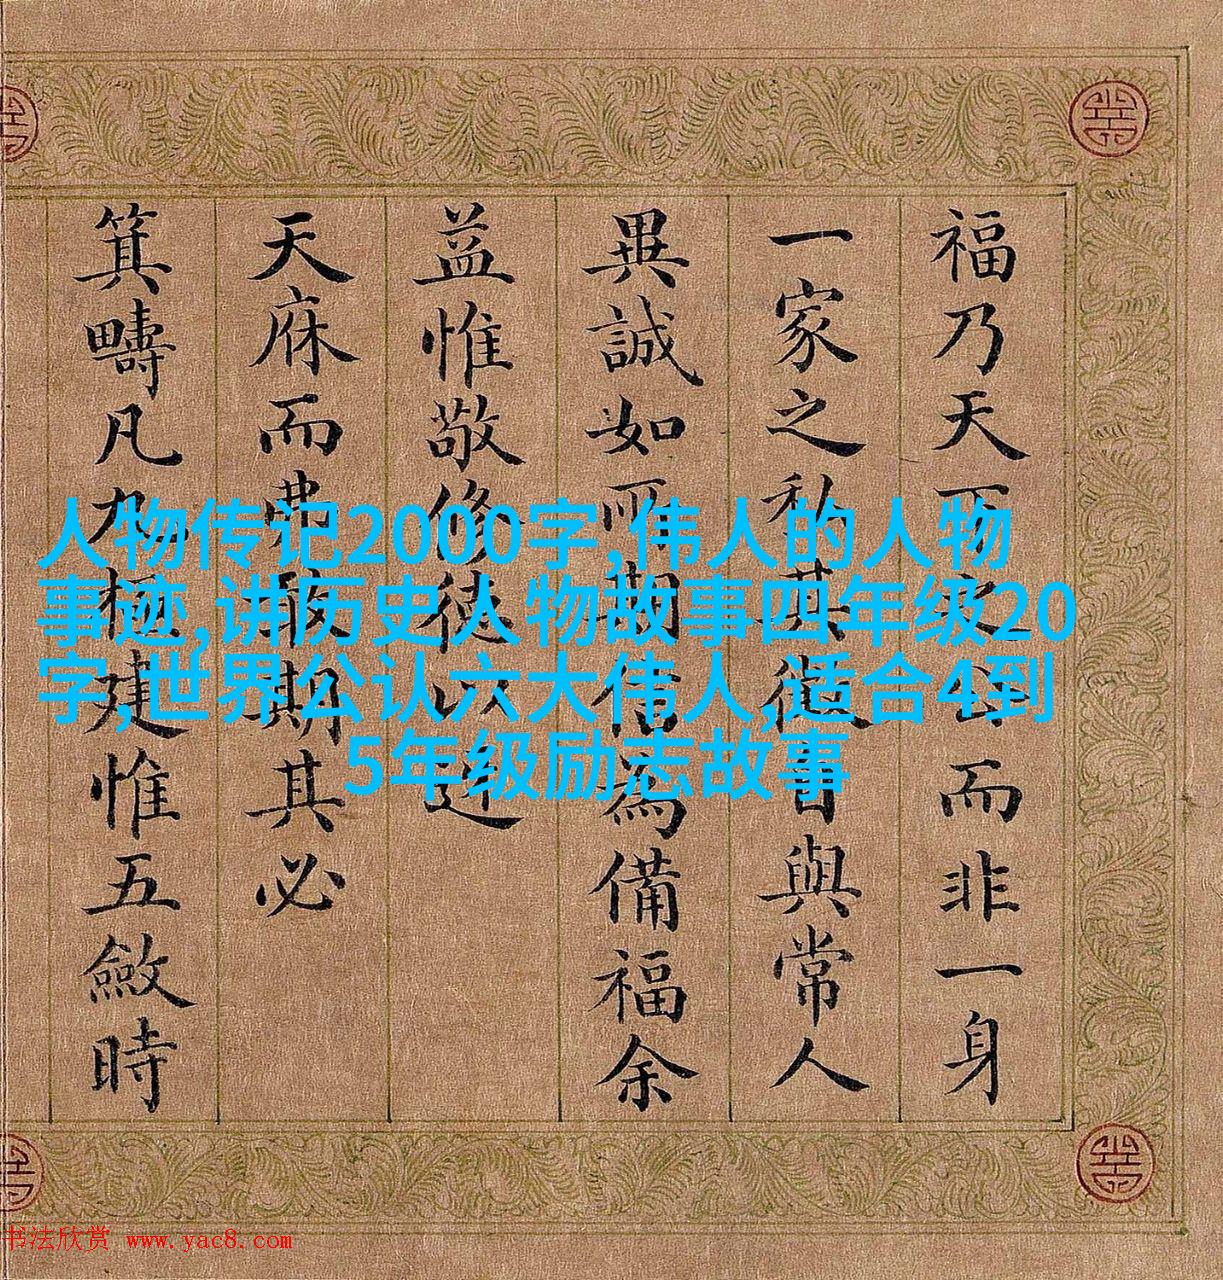 福乃天下之而非一身
一家之私其從與常人
異誠如所期信為備福余
益惟敬修德以迓
天庥而弗敢期其必
箕疇凡九極建惟五斂時
人物传记2000字,伟人的人物
事迹,讲历史人物故事四年级20
字,世界公认六大伟人,适合4到
5年级励志故事
书法欣赏 www.yac8.com